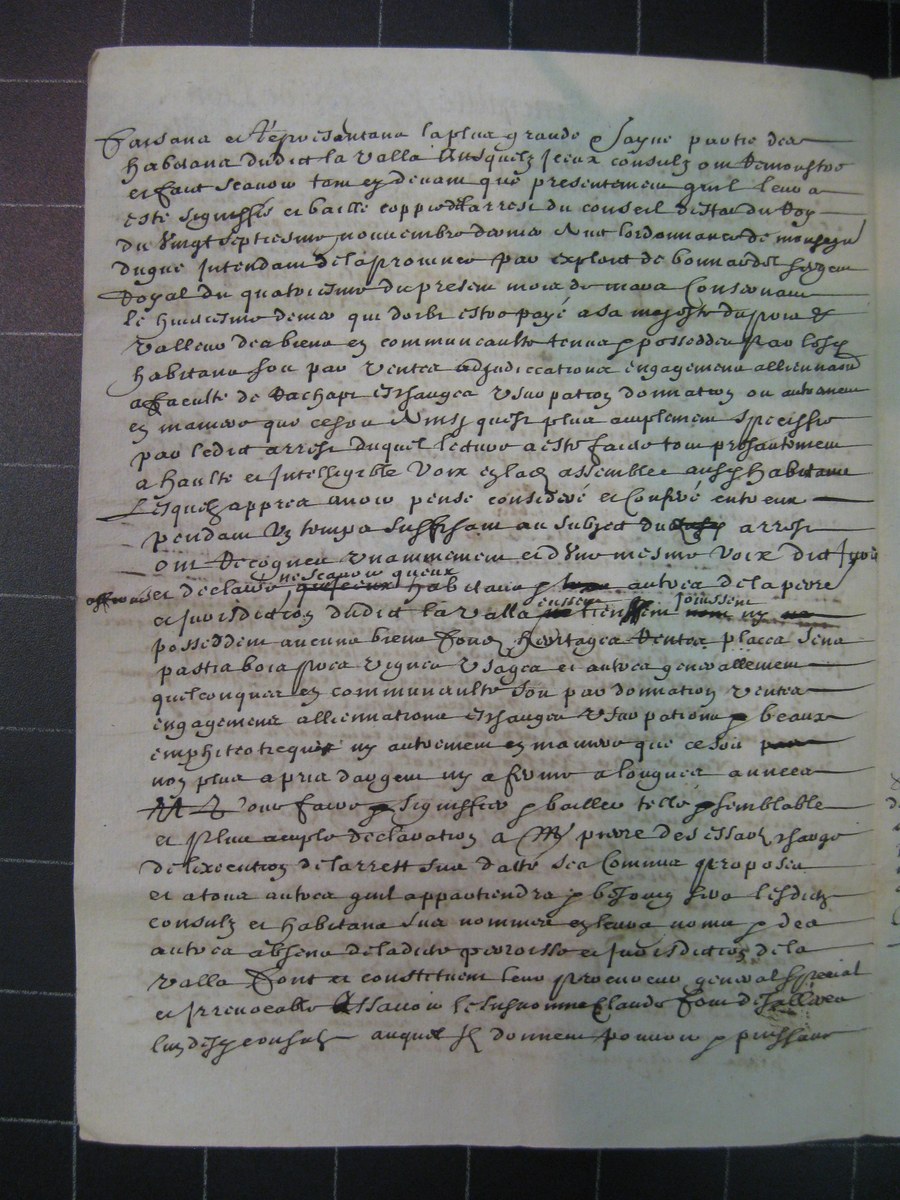 Faisans et Représentans la plus grande & sayne partie des
habitans dudict la valla Ausquelz iceux consulz ont Remonstre
et faict scavoir tant cy devant que presentement qu'il leur a
esté signiffié et baillé coppie de l'arrest du conseil d'estat du Roy
du vingt septiesme novembre dernier Avec l'ordonnance de monseigr
dugué Intendant de la province par exploit de bonnardel sergent
Royal du quatriesme du present mois de mars Concernant
le huictiesme denier qui doibt estre payé a sa majesté du prix &
valleur des biens en communaulté tenus & posseddés par lesdz
habitans soit par ventes adjudiccations engagements alliennations
a faculté de Rachapt eschanges Usurpation donnation ou autrement
en maniere que ce soit Ainsy qu'est plus amplement speciffié
par ledit arrest duquel lecture a esté faicte tout presantement
a haulte et Intelligible voix en lad assemblée ausdz habitans
Lesquelz appres avoir pensé consideré et Conferé entr'eux
pendant un temps suffisant au subject dud arrest
ont Recogneu unanimement et d'une mesme voix dict Juré
affirmé et declairé, ne scavoir qu'eux habitans & autres de la parroisse
et jurisdiction dudict la Valla eussent tiennent jouissent ny
posseddent aucuns biens fondz heritages Rentes places prés
pastis bois vignes Usages et autres generallement
quelconques en communaulté soit par donnation ventes
engagements alliennations eschanges Usurpations & beaux
emphiteotiques ny autrement en maniere que ce soit
non plus a prix d'argent ny a ferme a longues années
Et pour faire & signiffier & bailler telle & semblable
et plus ample declaration a Mre pierre desessarts chargé
de l'execution de l'arrest sus datté ses Commis preposés
et a tous autres qu'il appartiendra & besoing sera lesdictz
consulz et habitans sus nommés en leurs noms & des
autres absens de ladicte parroisse et jurisdiction de la
valla font et constituent leur procureur general & special
et irrevocable Assavoir le susnommé Claude
l'un desdz consulz auquel ilz donnent pouvoir & puissance